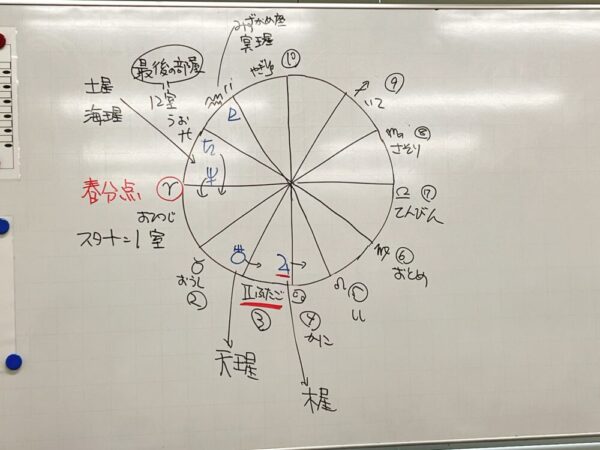 みずがめ座
冥王星
最後の部屋
12室
うお
土星
海王星
やぎ
⑩
♐ ⑨
いて
♏ ⑧
さそり
♒
♇
♄
♆
春分点 ♈
おひつじ
スタート=1室
♎ ⑦
てんびん
♍ ⑥
おとめ
♌ ⑤
しし
♉
おうし
②
♅
♃
♊ふたご
③
♋
④
かに
天王星
木星